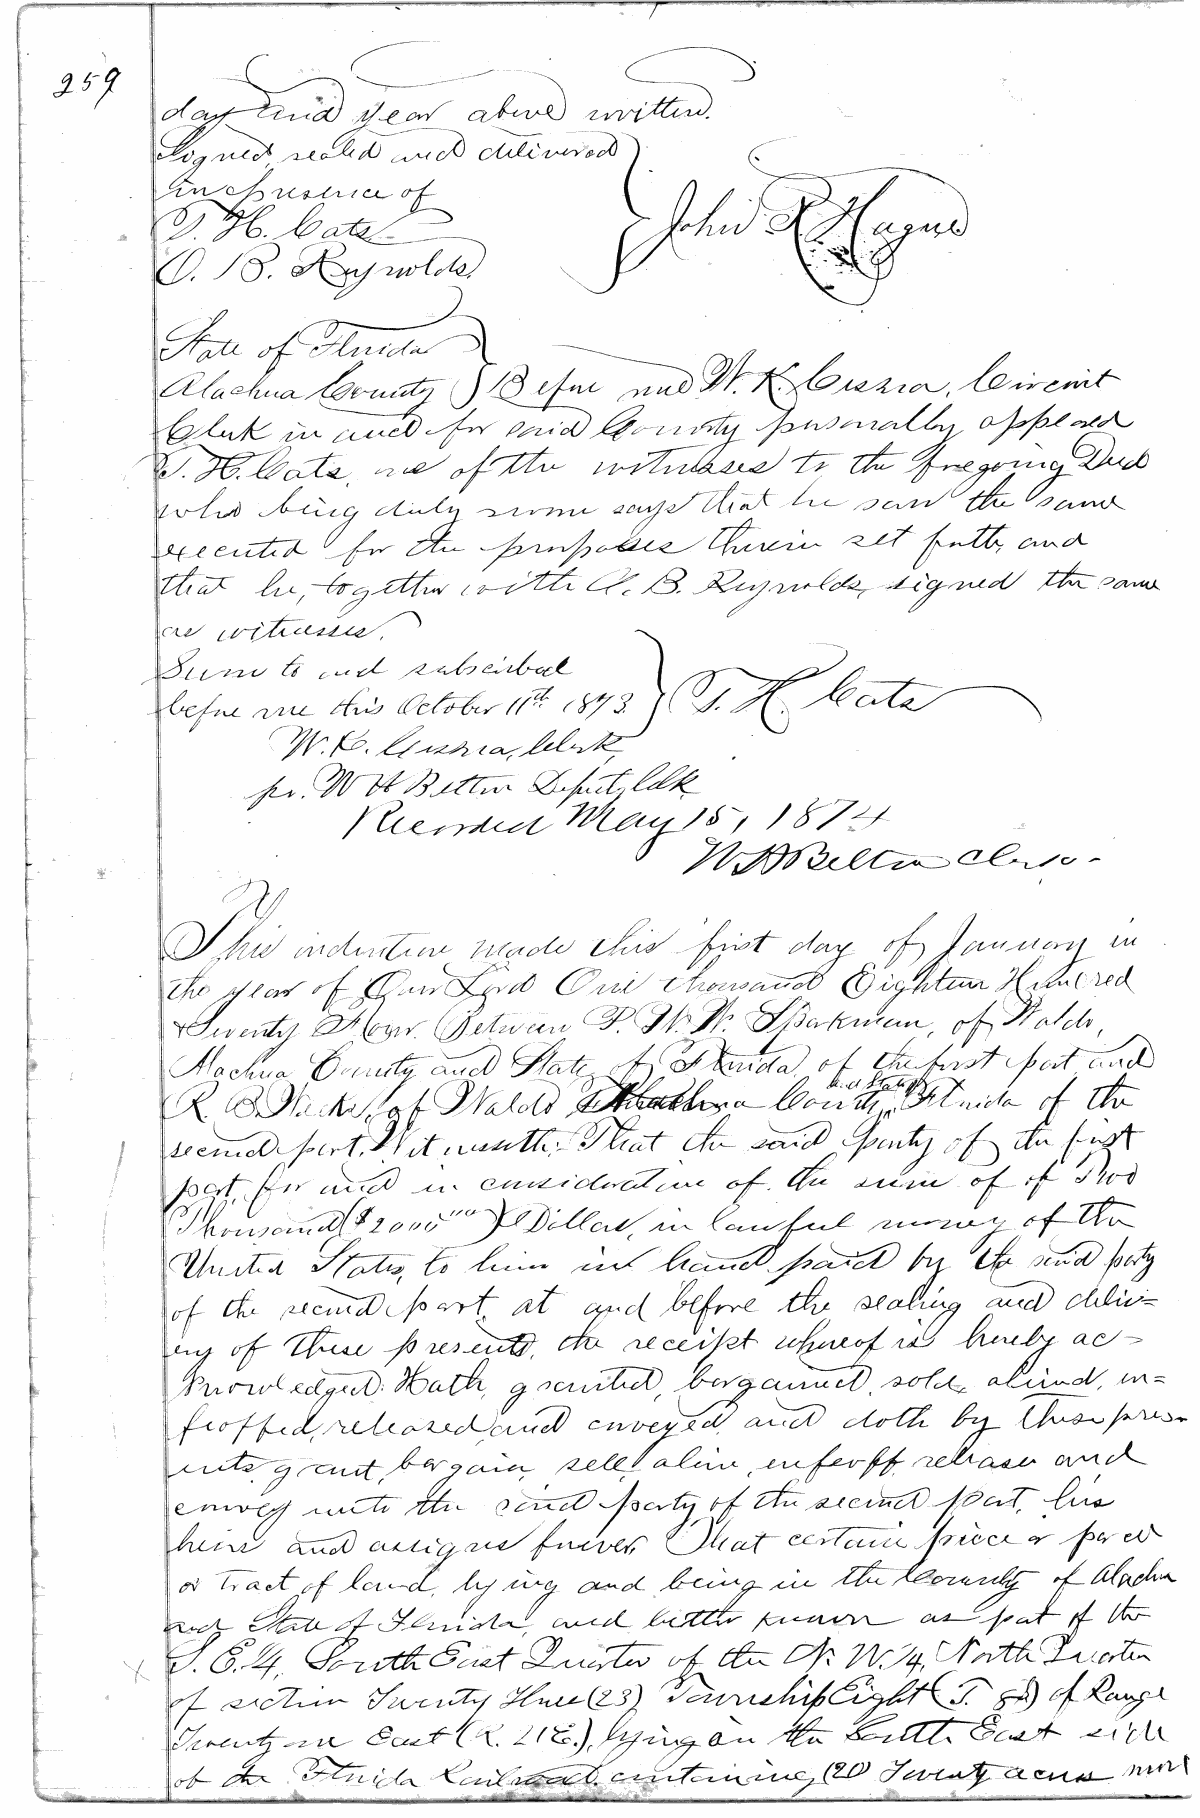 259
day and year above written.
Signed, sealed and delivered
in presence of
T. H. Cats
O. B. Reynolds.
John R Hague
State of Florida
Alachua County } Before me W. K. Cessna, Circuit
Clerk in and for said County personally appeared
T. H. Cats, one of the witnesses to the foregoing Deed
who being duly sworn says that he saw the same
executed for the purposes therein set forth, and
that he, together with O. B. Reynolds, signed the same
as witnesses.
Sworn to and subscribed
before me this October 11th 1873. } T. H. Cats
W. K. Cessna, Clerk,
pr. W H Belton Deputy Clk
Recorded May 15, 1874
W H Belton Clerk-
This indenture made this first day of January in
the year of Our Lord One thousand Eighteen Hundred
& Seventy Four. Between P. W. W. Sparkman, of Waldo,
Alachua County and State of Florida, of the first part and
R. B. of Waldo Alachua County, and State of Florida of the
second part, Witnesseth: That the said party of the first
part, for and in consideration of the sum of of Two
Thousand ($2000.00) Dollars, in lawful money of the
United States, to him in hand paid by the said party
of the second part, at and before the sealing and deliv=
ery of these presents, the receipt whereof is hereby ac-
knowledged: Hath, granted, bargained, sold, aliend, in=
feoffed, released, and conveyed, and doth by these pres=
ents, grant, bargain, sell, alien, enfeoff, release and
convey unto the said party of the second part, his
heirs and assigns forever, That certain piece or parcel
or tract of land, lying and being in the County of Alachua
and State of Florida, and better known as part of the
S. E. 1/4, South East Quarter of the N. W. 1/4, North Quarter
of section Twenty Three (23) Township Eight (T. 8S) of Range
Twenty one East (R. 21 E.), lying on the South East side
of the Florida Railroad. containing (20) Twenty acres more